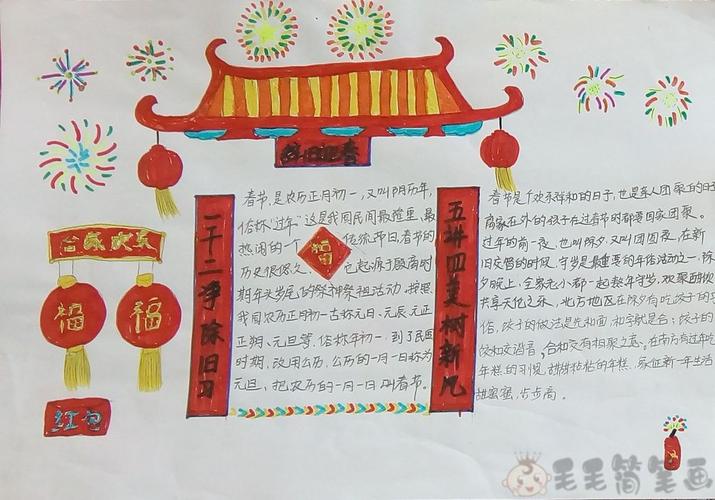 辞旧迎春
春节,是农历正月初一,又叫阴历年,
俗称“过年”这是我国民间最隆重、最
热闹的一个
福
传统节日,春节的
历史很悠久,
它起源于殷商时
期年头岁尾的祭神祭祖活动,按照
我国农历正月初一古称元日、元辰、元正
正朔、元旦等,俗称年初一,到了民国
时期,改用公历,公历的一月一日称为
元旦,把农历的一月一日叫春节。
一干二净除旧习
五讲四美树新风
合家欢乐
福
福
红包
春节是个欢乐祥和的日子,也是亲人团聚的日
离家在外的孩子在过春节时都要回家团聚。
过年的前一夜,也叫除夕,又叫团圆夜,在新
旧交替的时候,守岁是最重要的年俗活动之一,除
夕晚上,全家老小都一起熬年守岁,欢聚酣饮
共享天伦之乐,北方地区在除夕有吃饺子的习
俗,饺子的做法是先和面,和字就是合;饺子的
饺和交谐音,合和交有相聚之意。在南方有过年吃
年糕的习惯,甜甜粘粘的年糕,象征新一年生活
甜蜜蜜,步步高。
毛毛简笔画